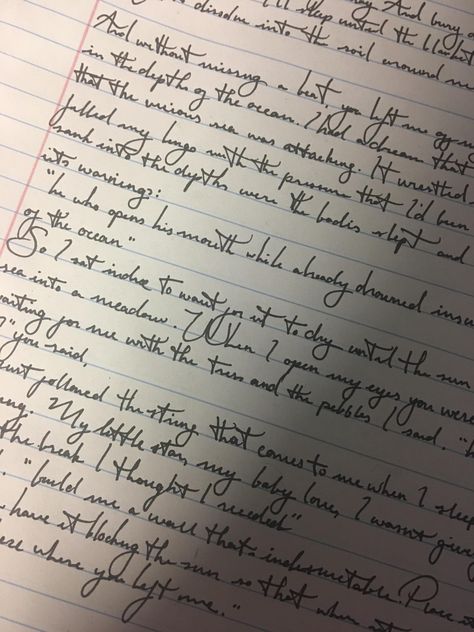 And bury
I'll sleep until the
to dissolve into the soil around me
And without missing a beat, you left me
in the depths of the ocean. I had a dream that
that the vicious sea was attacking. It wrestled
filled my lungs with the pressure that I'd been
sank into the depths were the bodies slept and
its warnings:
"he who opens his mouth while already drowned
of the ocean"
So I sat to wait for it to dry until the sun
sea into a meadow. When I open my eyes you were
waiting for me with the trees and the pebbles I said. "
" you said.
Just followed the string that comes to me when I sleep
. My little star, my baby love, I wasn't
the break I thought I needed"
"build me a wall thats indestructable. Place it
have it blocking the sun so that when it
where you left me."